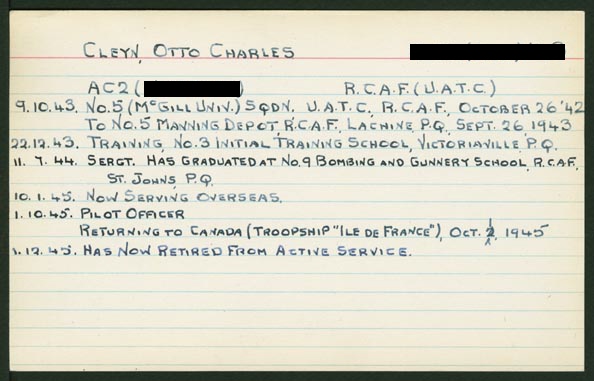 CLEYN, OTTO CHARLES
AC2 ( ) R.C.A.F. (U.A.T.C.)
9.10.43. NO.5 (MCGILL UNIV.) SQDN. U.A.T.C., R.C.A.F., OCTOBER 26 '42
TO NO.5 MANNING DEPOT, R.C.A.F., LACHINE, P.Q., SEPT. 26, 1943
22.12.43. TRAINING, NO.3 INITIAL TRAINING SCHOOL, VICTORIAVILLE, P.Q.
11. 7. 44. SERGT. HAS GRADUATED AT NO.9 BOMBING AND GUNNERY SCHOOL, R.C.A.F.
ST. JOHNS, P.Q.
10. 1. 45. NOW SERVING OVERSEAS.
1. 10. 45. PILOT OFFICER
RETURNING TO CANADA (TROOPSHIP "ILE DE FRANCE"), OCT. 1, 1945
1. 12. 45. HAS NOW RETIRED FROM ACTIVE SERVICE.